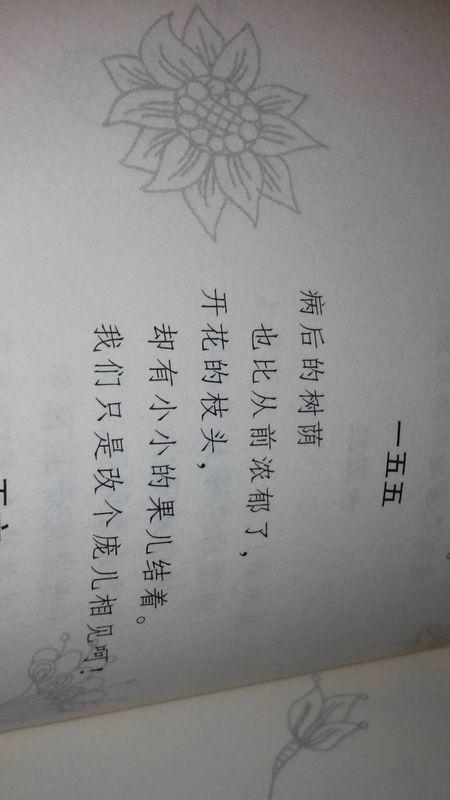 一五五
病后的树荫
也比从前浓郁了，
开花的枝头，
却有小小的果儿结着。
我们只是改个庞儿相见呵！